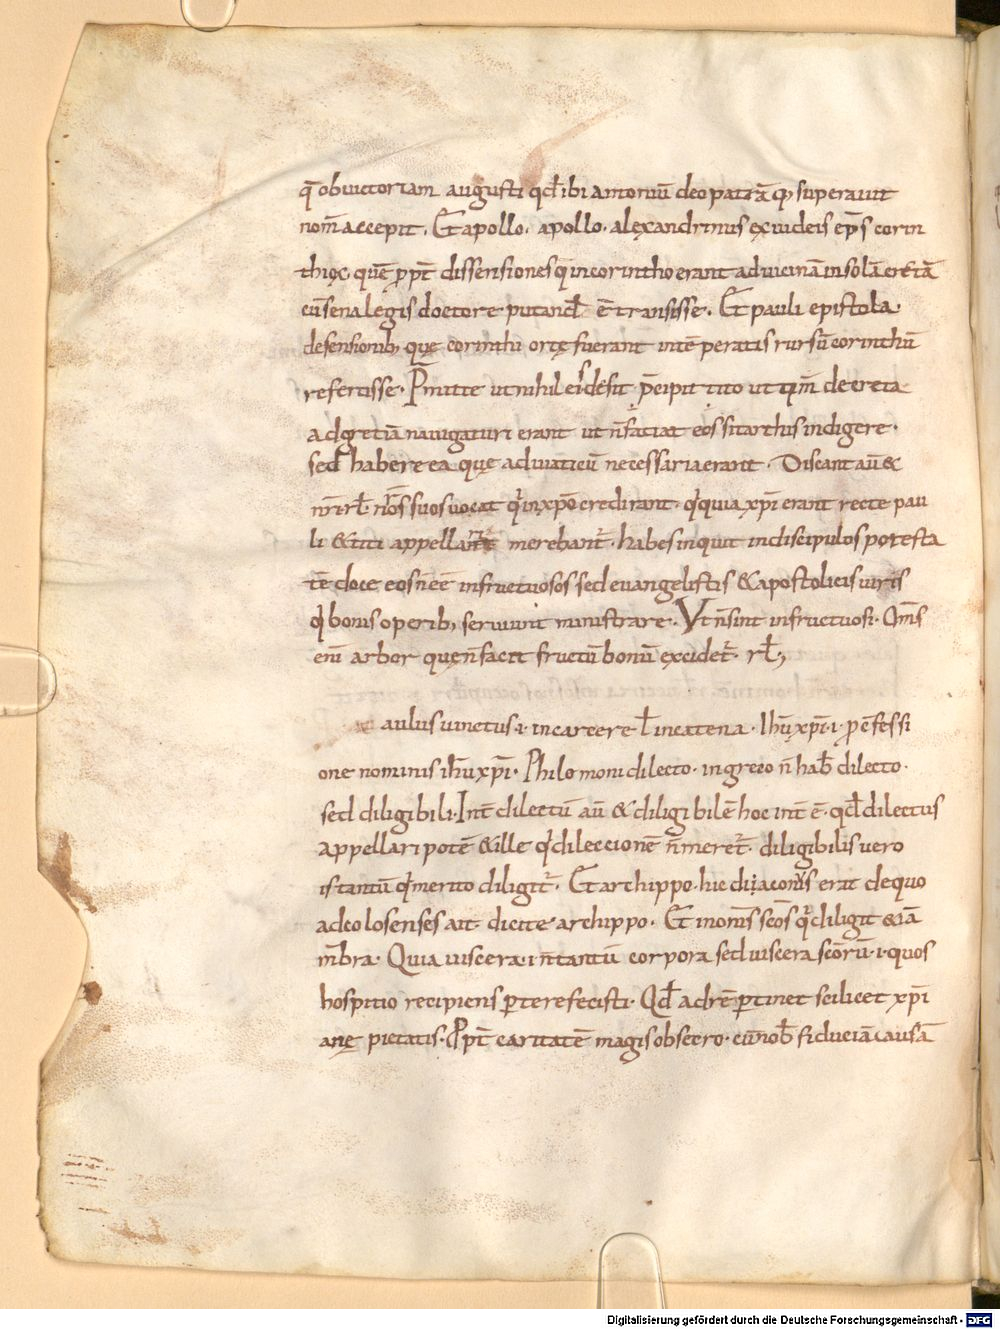 q̄ obuictoriam augusti qđ ibi antoniū cleopatrā q; superauit
nom̄ accepit. Et apollo. apollo. alexandrinus exiudeis ep̄s corin
thioꝝ. quē ꝓpt̄ dissensiones q̄ incorintho erant aduicinā insolā cretā
cū sena legis doctore putand̄ ē transisse. Et pauli epistola
defensionib; quę corinthi ortę fuerant intēperatis rursū corinthū
refertisse. P̄mitte ut nihil eis desit p̄cipit tito ut qm̄ decreta
adgretiā nauigaturi erant ut n̄ faciat eos sitarchiis indigere.
sed habere ea quę aduiaticū necessaria erant. Discant aū &
nr̄i rł. nr̄os suos uocat q̇ inxp̄o credirant. q̇ quia xp̄i erant recte pau
li & titi appellari merebant᷑. habes inquit indiscipulos potesta
tē doce eos n̄ eē infructuosos sed euangelistis & apostolicis uiris
q̇ bonis operib; seruiunt ministrare. Vt n̄ sint infructuosi. Om̄s
eni arbor quę n̄ facit fructū bonū excidet᷑. rł;
aulus uinctus .i. incarcere ł incatena. Ihū xp̄i .i. ꝓ cōfessi
one nominis ihū xp̄i. Philomoni dilecto. ingreco n̄ hab̄ dilecto.
sed diligibili. Int̄ dilectū aū & diligibilē hoc int̄ ē. qđ dilectus
appellari potē & ille q̇ dileccionē n̄ meret᷑. diligibilis uero
is tantū q̇ merito diligit᷑. Et archippo. hic diaconus erat de quo
adcolosenses ait. dicite archippo. Et inom̄s sc̄os q̇ diligit & iā
m̄bra. Quia uiscera .i. n̄ tantū corpora sed uiscera sc̄orū .i. quos
hospitio recipiens ꝑte refecisti. Qđ adrē ꝑtinet scilicet xp̄i
anę pietatis. Ppt̄ caritatē magis obsecro. cū nob̄ fiduciā causā
Digitalisierung gefördert durch die Deutsche Forschungsgemeinschaft - DFG